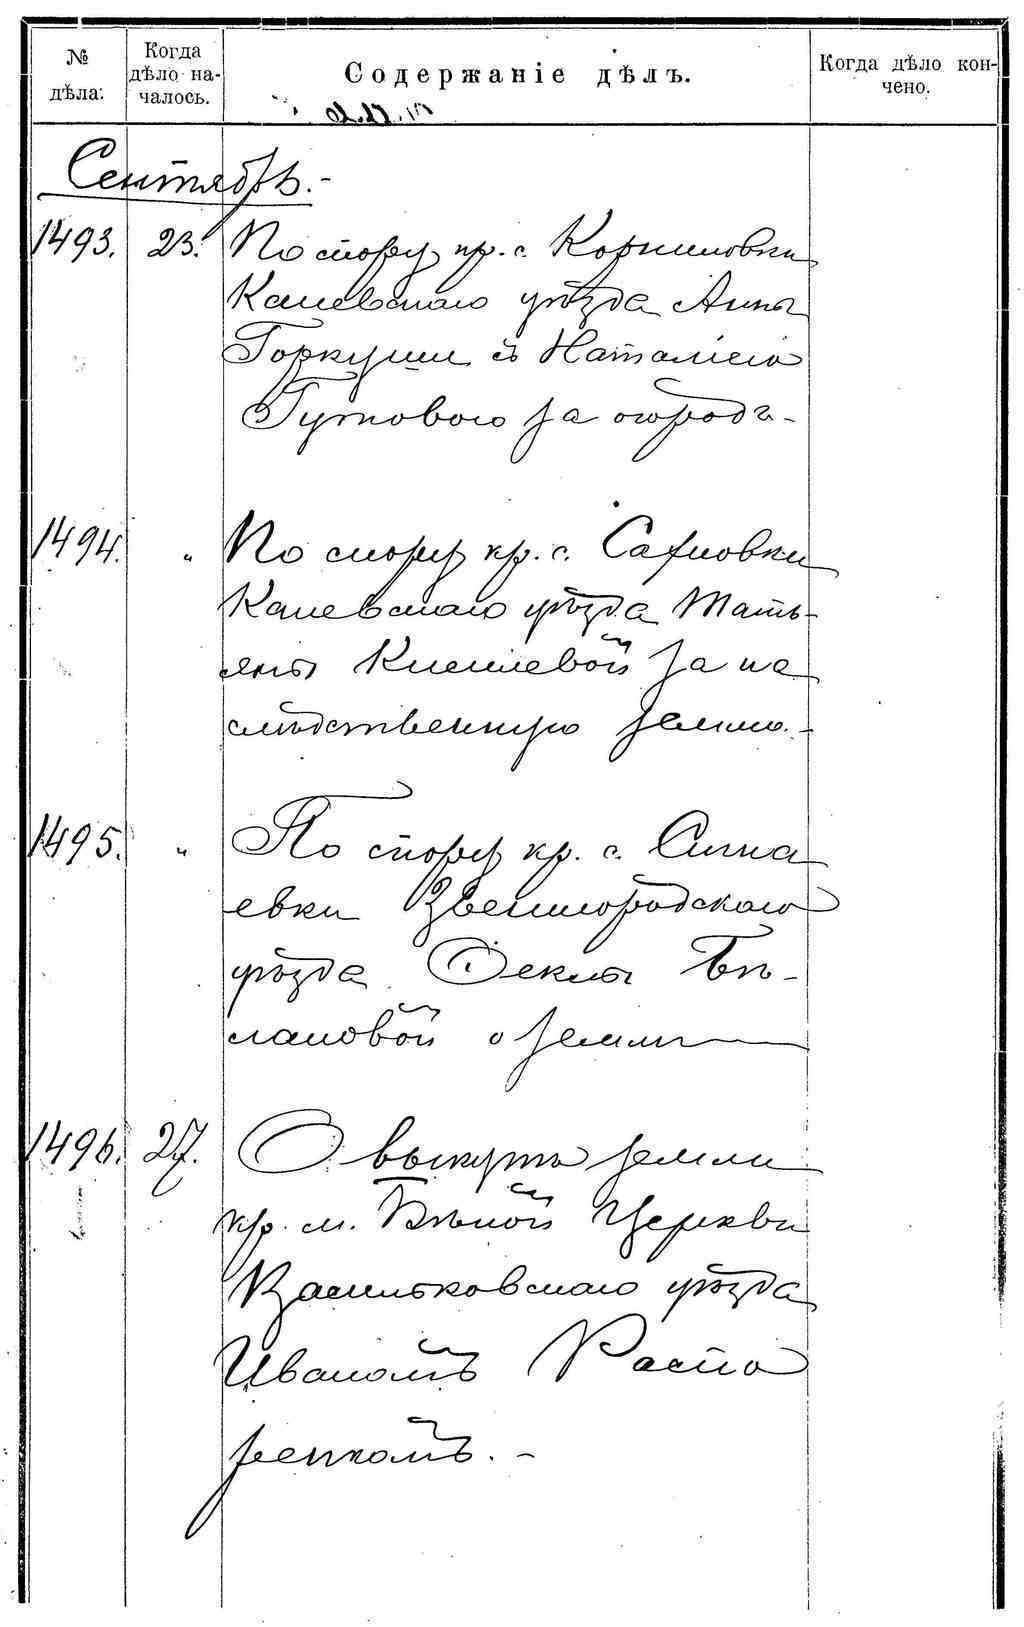 № дѣла:
Когда дѣло на-
чалось.
Содержаніе дѣлъ.
Когда дѣло кон-
чено.
Сентябрь.-
1493. 23. По спору кр. с. Корниловки
Каневскаго уѣзда Анны
Горкуши съ Наталіею
Гутовою за огородъ-
1494. " По спору кр. с. Сахновки
Каневскаго уѣзда Тать-
яны Княжевой за на
слѣдственную землю.-
1495. " По спору кр. с. Сигна
евки Звенигородскаго
уѣзда Феклы Бѣ-
лановой о землѣ
1496. 27. О выкупѣ земли
кр. м. Бѣлой Церкви
Васильковскаго уѣзда
Иваномъ Распо
ренкомъ.-